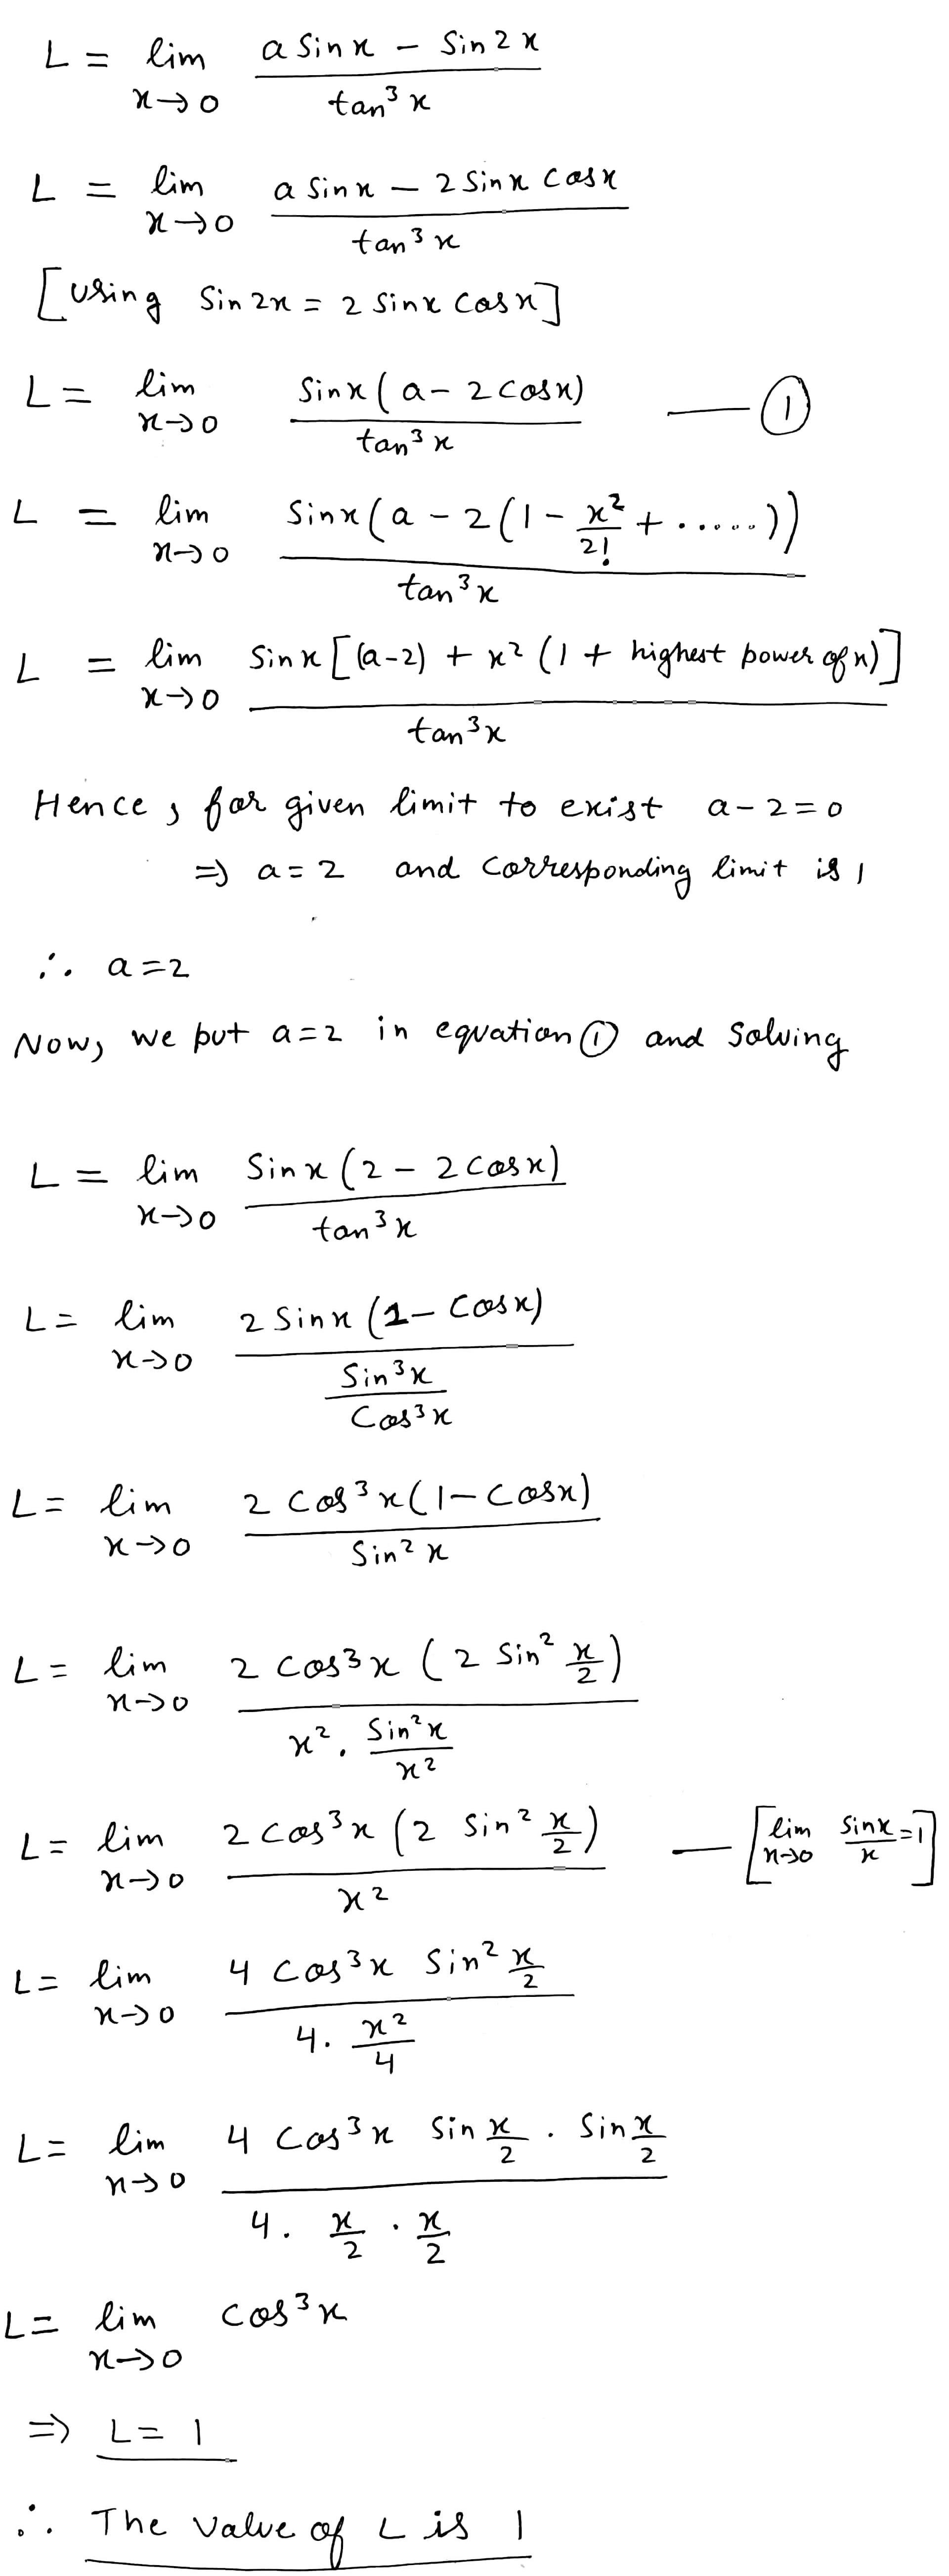 L = lim x→0 (a Sin x − Sin 2x) / tan³x
L = lim x→0 (a Sin x − 2 Sin x Cos x) / tan³x
[Using Sin 2x = 2 Sin x Cos x]
L = lim x→0 Sin x (a − 2 cos x) / tan³x — ①
L = lim x→0 Sin x (a − 2(1 − x²/2! + .....)) / tan³x
L = lim x→0 Sin x [(a−2) + x² (1 + highest power of x)] / tan³x
Hence, for given limit to exist a − 2 = 0
⇒ a = 2 and Corresponding limit is 1
∴ a = 2
Now, we put a = 2 in equation ① and Solving
L = lim x→0 Sin x (2 − 2 Cos x) / tan³x
L = lim x→0 2 Sin x (1 − Cos x) / (Sin³x / Cos³x)
L = lim x→0 2 Cos³x (1 − Cos x) / Sin²x
L = lim x→0 2 Cos³x (2 Sin² x/2) / (x² . Sin²x / x²)
L = lim x→0 2 Cos³x (2 Sin² x/2) / x² — [lim x→0 Sin x / x = 1]
L = lim x→0 4 Cos³x Sin² x/2 / (4 . x²/4)
L = lim x→0 4 Cos³x Sin x/2 . Sin x/2 / (4 . x/2 . x/2)
L = lim x→0 Cos³x
⇒ L = 1
∴ The Value of L is 1